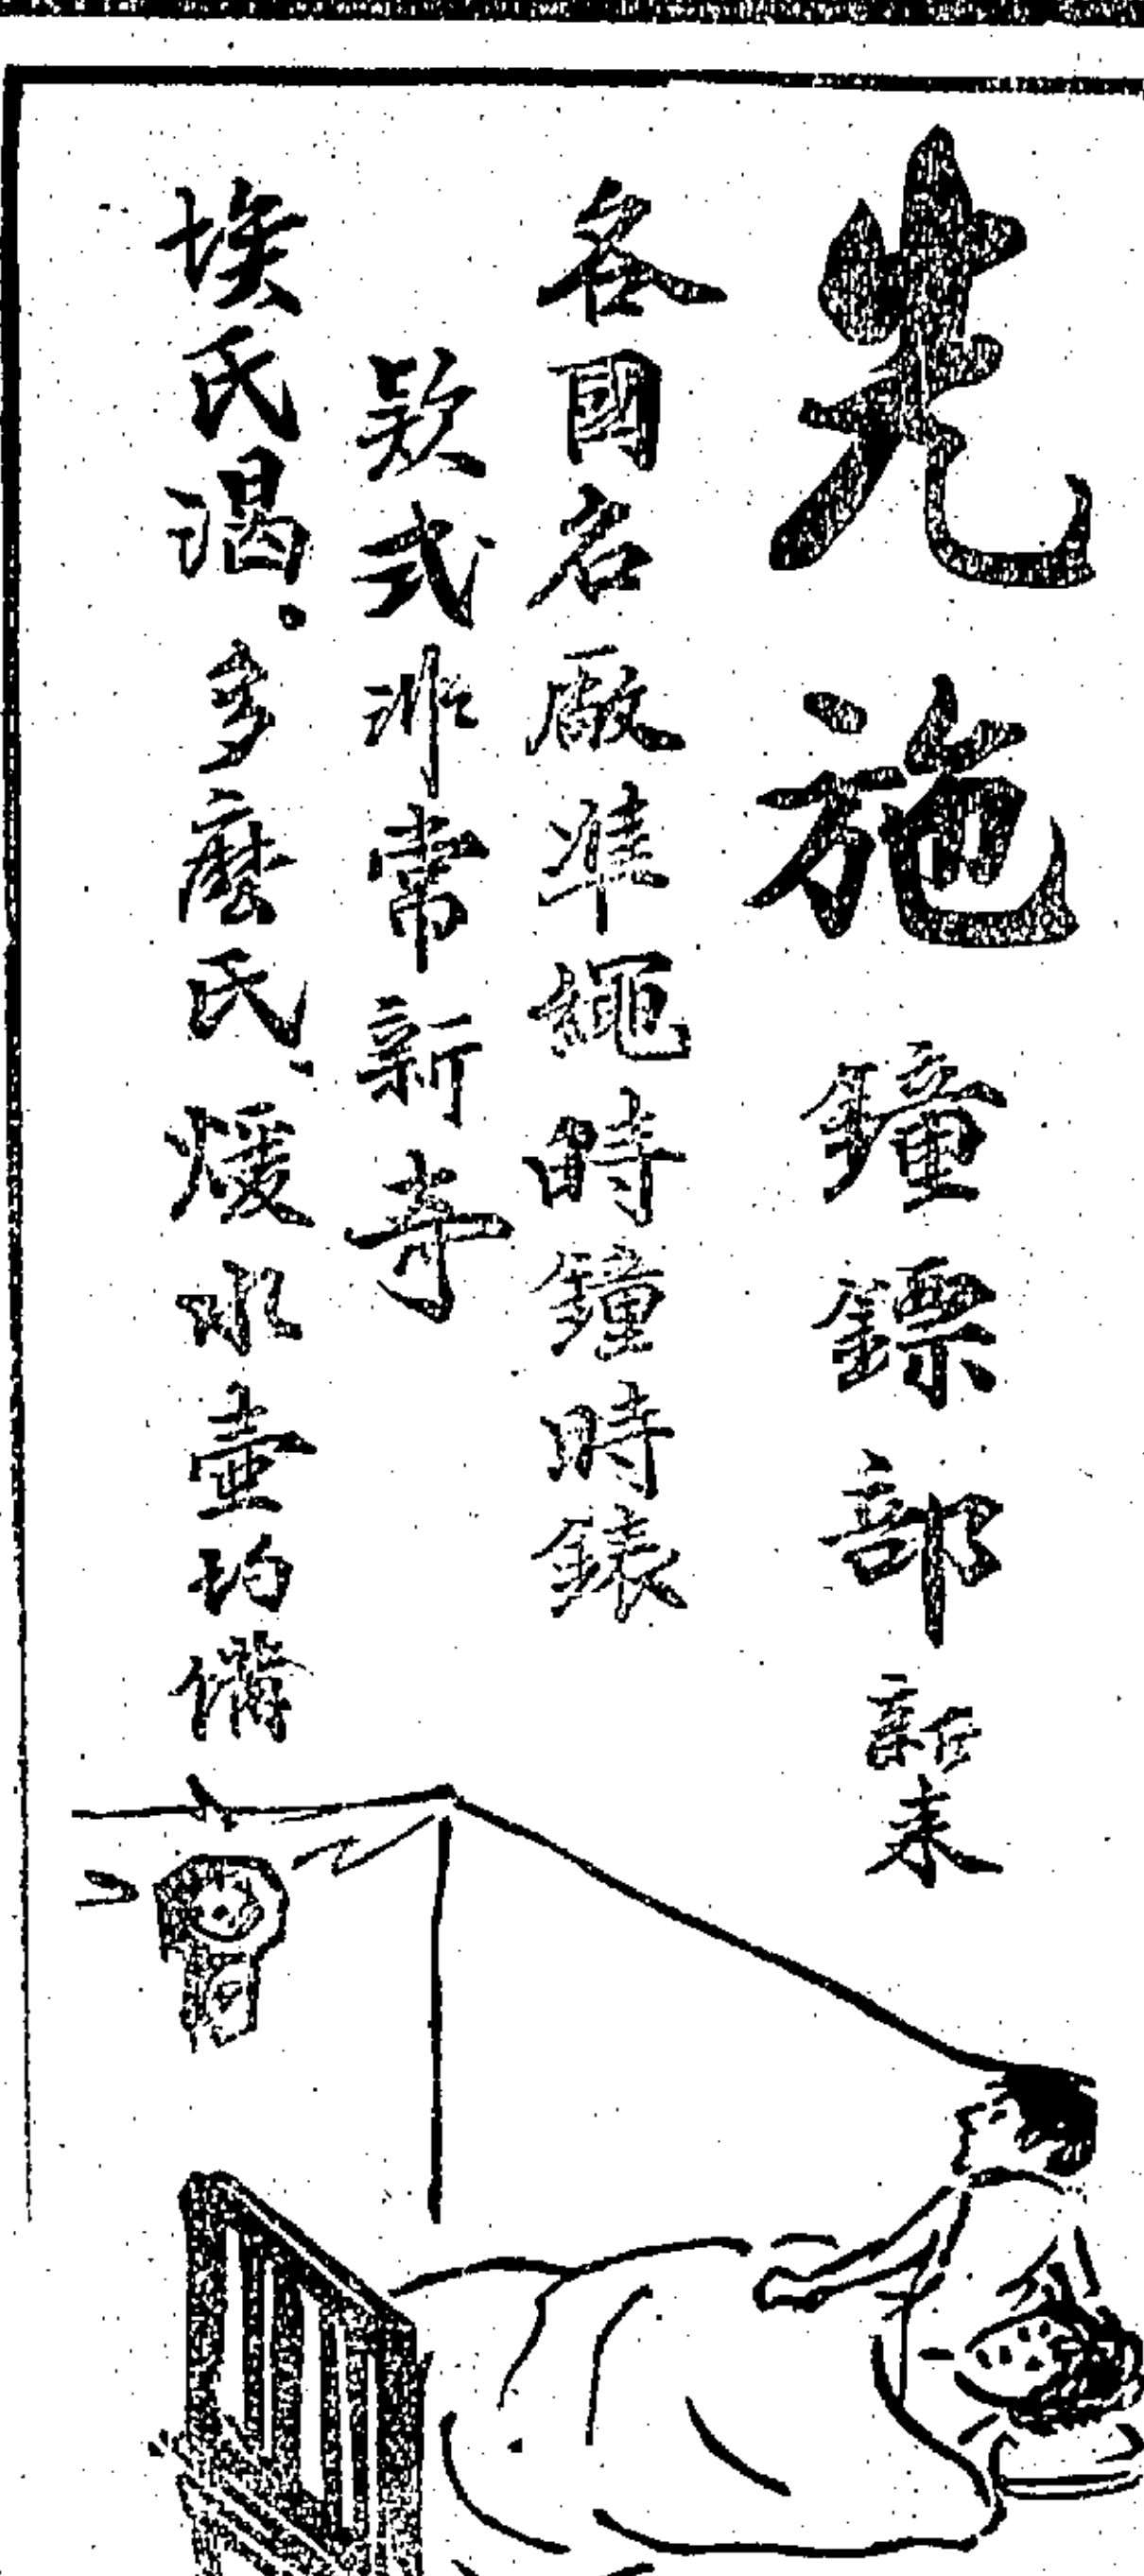 先施鐘鏢部新来
各國名厰準繩時鐘時錶
欵式非常新奇
埃氏渴。多麽氏、煖水壺均備